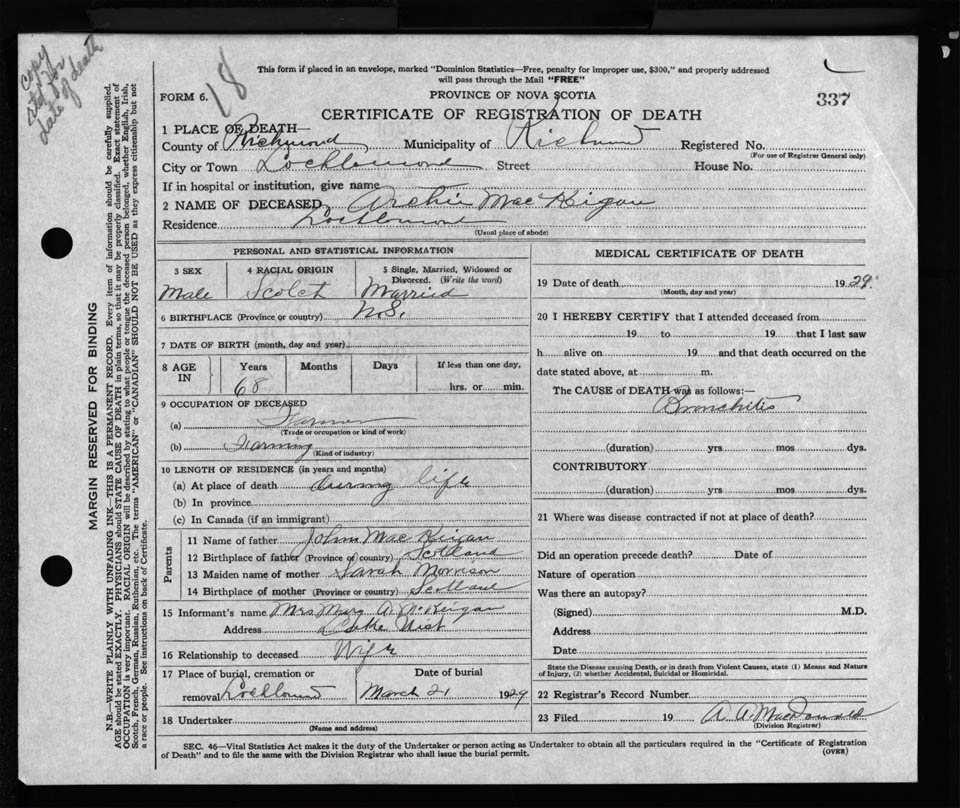 copy
std for
date of death
18
This form if placed in an envelope, marked "Dominion Statistics—Free, penalty for improper use, $300," and properly addressed
will pass through the Mail "FREE"
FORM 6.
PROVINCE OF NOVA SCOTIA
337
CERTIFICATE OF REGISTRATION OF DEATH
1 PLACE OF DEATH—
County of Richmond Municipality of Richmond Registered No.
(For use of Registrar General only)
City or Town Lochlomond Street House No.
If in hospital or institution, give name
2 NAME OF DECEASED Archie MacKigan
Residence Lochlomond
(Usual place of abode)
PERSONAL AND STATISTICAL INFORMATION
3 SEX
Male
4 RACIAL ORIGIN
Scotch
5 Single, Married, Widowed or
Divorced. (Write the word)
Married
6 BIRTHPLACE (Province or country) N.S.
7 DATE OF BIRTH (month, day and year)
8 AGE
IN
Years
68
Months
Days
If less than one day,
hrs. or min.
9 OCCUPATION OF DECEASED
(a) Farmer
(Trade or occupation or kind of work)
(b) Farming
(Kind of industry)
10 LENGTH OF RESIDENCE (in years and months)
(a) At place of death during life
(b) In province
(c) In Canada (if an immigrant)
Parents
11 Name of father John MacKeigan
12 Birthplace of father (Province or country) Scotland
13 Maiden name of mother Sarah Morrison
14 Birthplace of mother (Province or country) Scotland
15 Informant's name Mrs Mary A. McKeigan
Address Loch Uist
16 Relationship to deceased Wife
17 Place of burial, cremation or
removal Lochlomond
Date of burial
March 21 1929
18 Undertaker
(Name and address)
MEDICAL CERTIFICATE OF DEATH
19 Date of death 1929
(Month, day and year)
20 I HEREBY CERTIFY that I attended deceased from
19 to 19 that I last saw
h alive on 19 and that death occurred on the
date stated above, at m.
The CAUSE of DEATH was as follows:—
Bronchitis
(duration) yrs mos dys.
CONTRIBUTORY
(duration) yrs mos dys.
21 Where was disease contracted if not at place of death?
Did an operation precede death? Date of
Nature of operation
Was there an autopsy?
(Signed) M.D.
Address
Date
State the Disease causing Death, or in death from Violent Causes, state (1) Means and Nature
of Injury, (2) whether Accidental, Suicidal or Homicidal.
22 Registrar's Record Number
23 Filed 19 A. A. MacDonald
(Division Registrar)
SEC. 46—Vital Statistics Act makes it the duty of the Undertaker or person acting as Undertaker to obtain all the particulars required in the "Certificate of Registration
of Death" and to file the same with the Division Registrar who shall issue the burial permit.
(OVER)
MARGIN RESERVED FOR BINDING
N.B.—WRITE PLAINLY WITH UNFADING INK—THIS IS A PERMANENT RECORD. Every item of information should be carefully supplied.
AGE should be stated EXACTLY. PHYSICIANS should STATE CAUSE OF DEATH in plain terms, so that it may be properly classified. Exact statement of
OCCUPATION is very important. RACIAL ORIGIN will be described by stating to what people or tongue the deceased person belonged, whether English, Irish,
Scotch, French, German, Russian, Ruthenian, etc. The terms "AMERICAN" or "CANADIAN" SHOULD NOT BE USED as they express citizenship but not
a race or people. See instructions on back of Certificate.